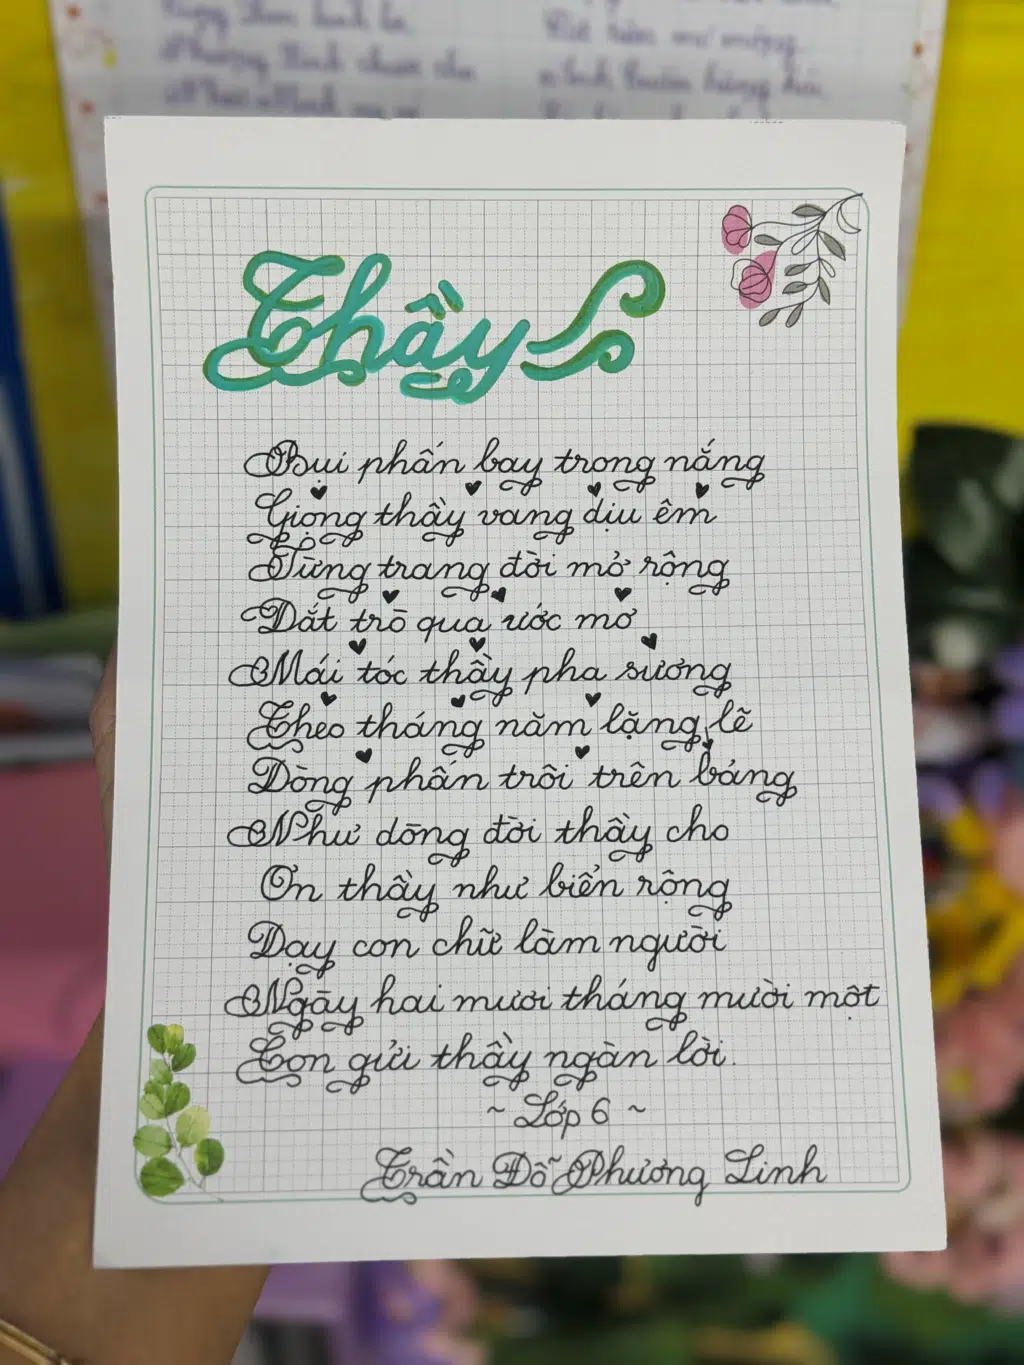 Thầy
Bụi phấn bay trong nắng
Giọng thầy vang dịu êm
Từng trang đời mở rộng
Dắt trò qua ước mơ
Mái tóc thầy pha sương
Theo tháng năm lặng lẽ
Dòng phấn trôi trên bảng
Như dòng đời thầy cho
Ơn thầy như biển rộng
Dạy con chữ làm người
Ngày hai mươi tháng mười một
Con gửi thầy ngàn lời.
~ Lớp 6 ~
Trần Đỗ Phương Linh